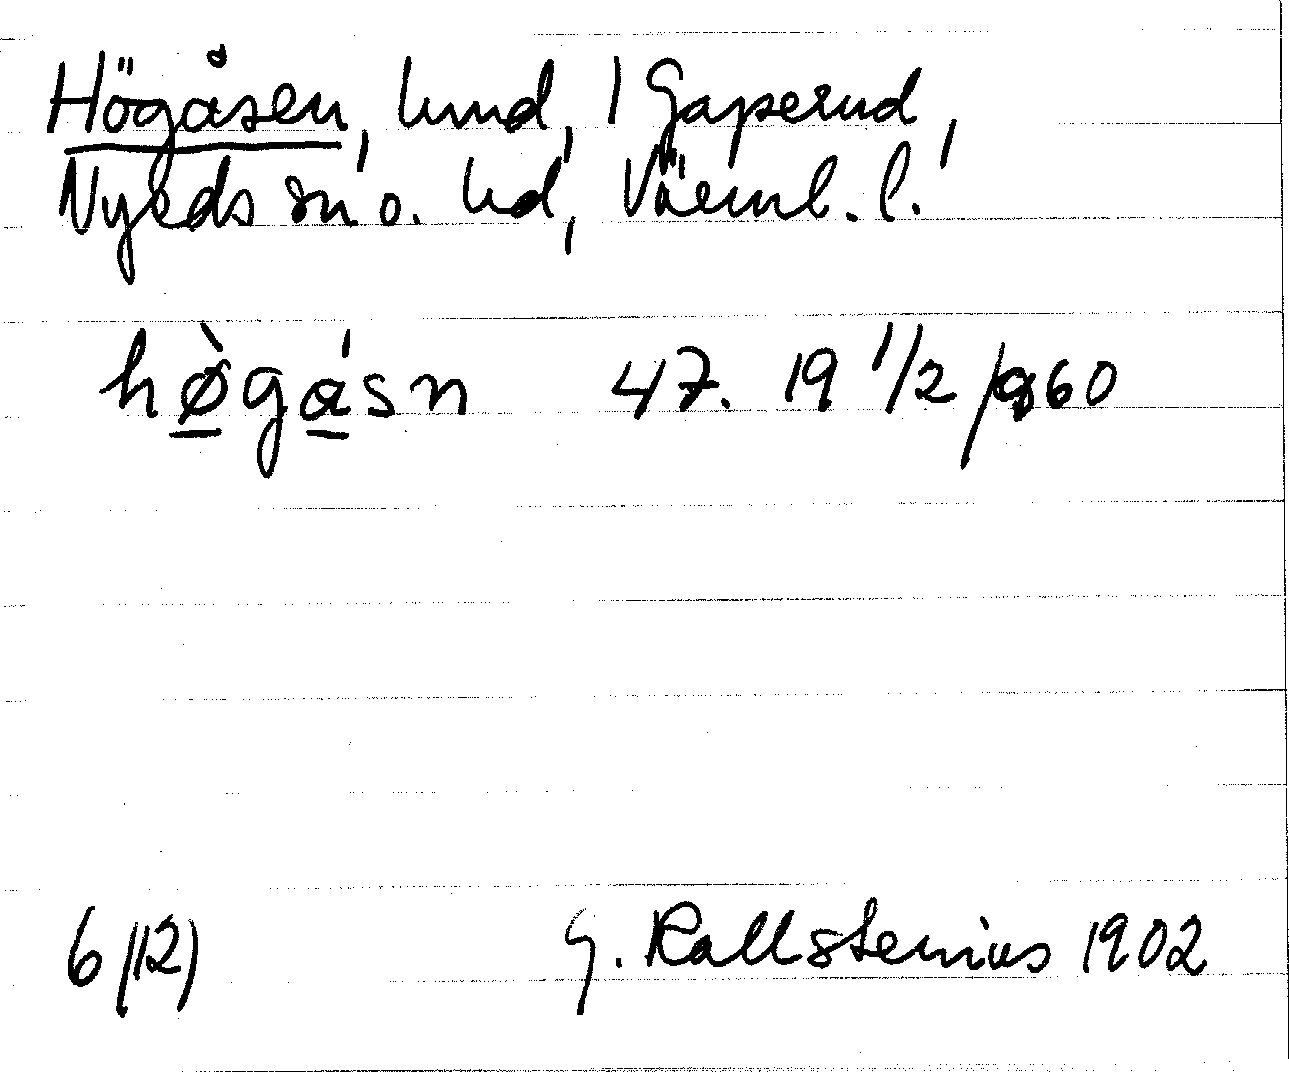 Högåsen, hmd, 1 Gaperud,
Nyeds sn o. hd, Värml. l.
hø̀gásn 47. 19 1/2 1960
6 (12) G. Kallstenius 1902